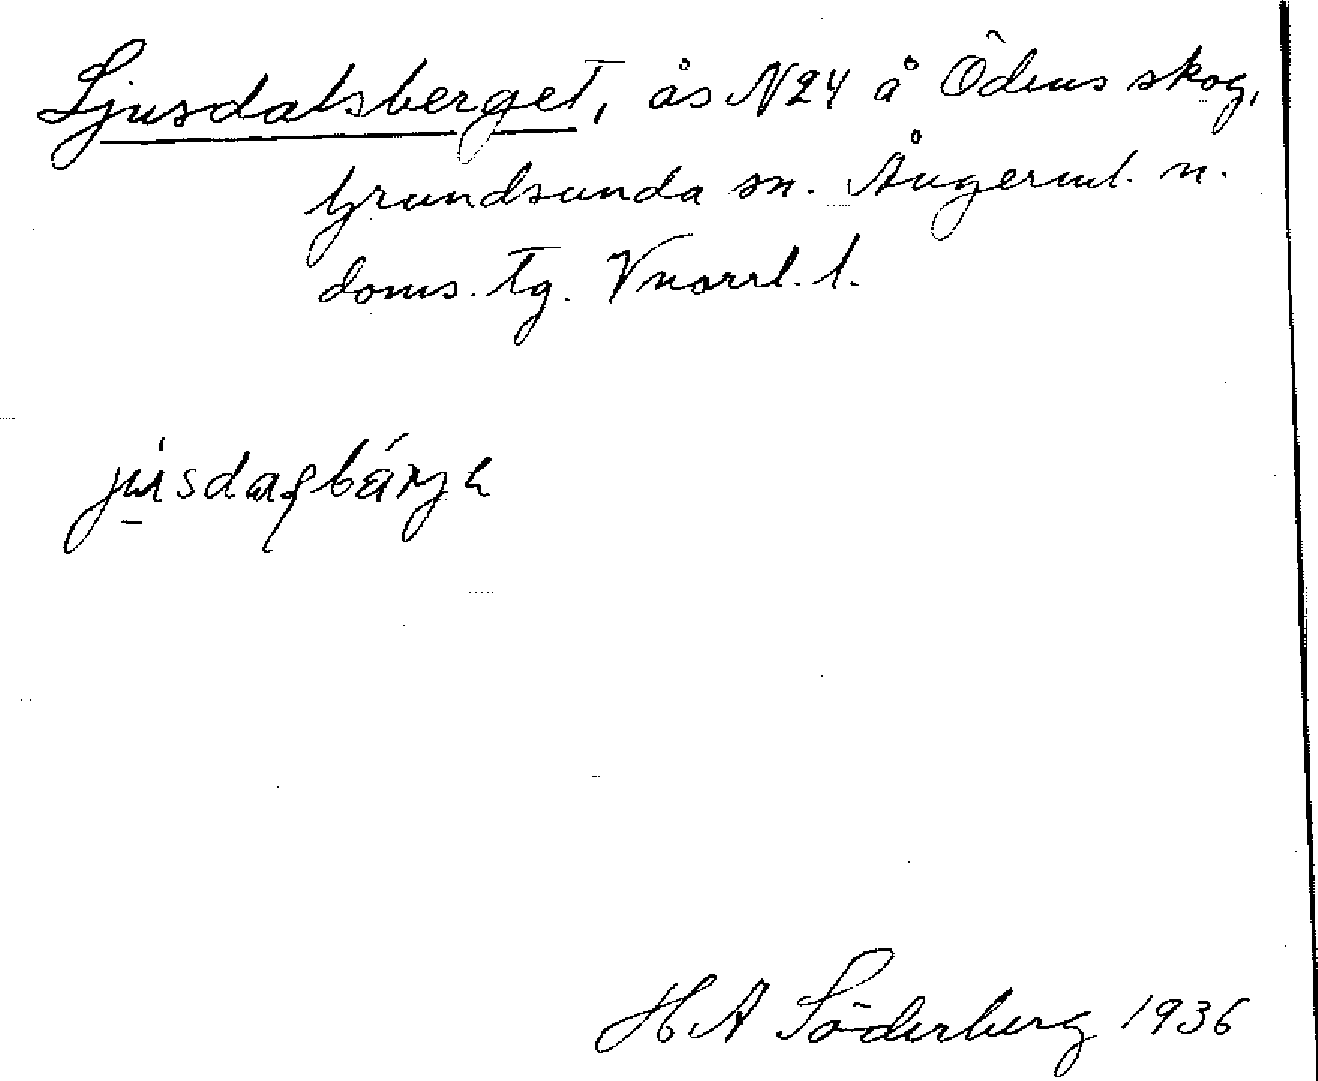 Ljusdalsberget, ås N24 å Ödens skog,
Grundsunda sn. Ångerml. n.
doms. tg. Vnorrl. l.
H A Söderberg 1936